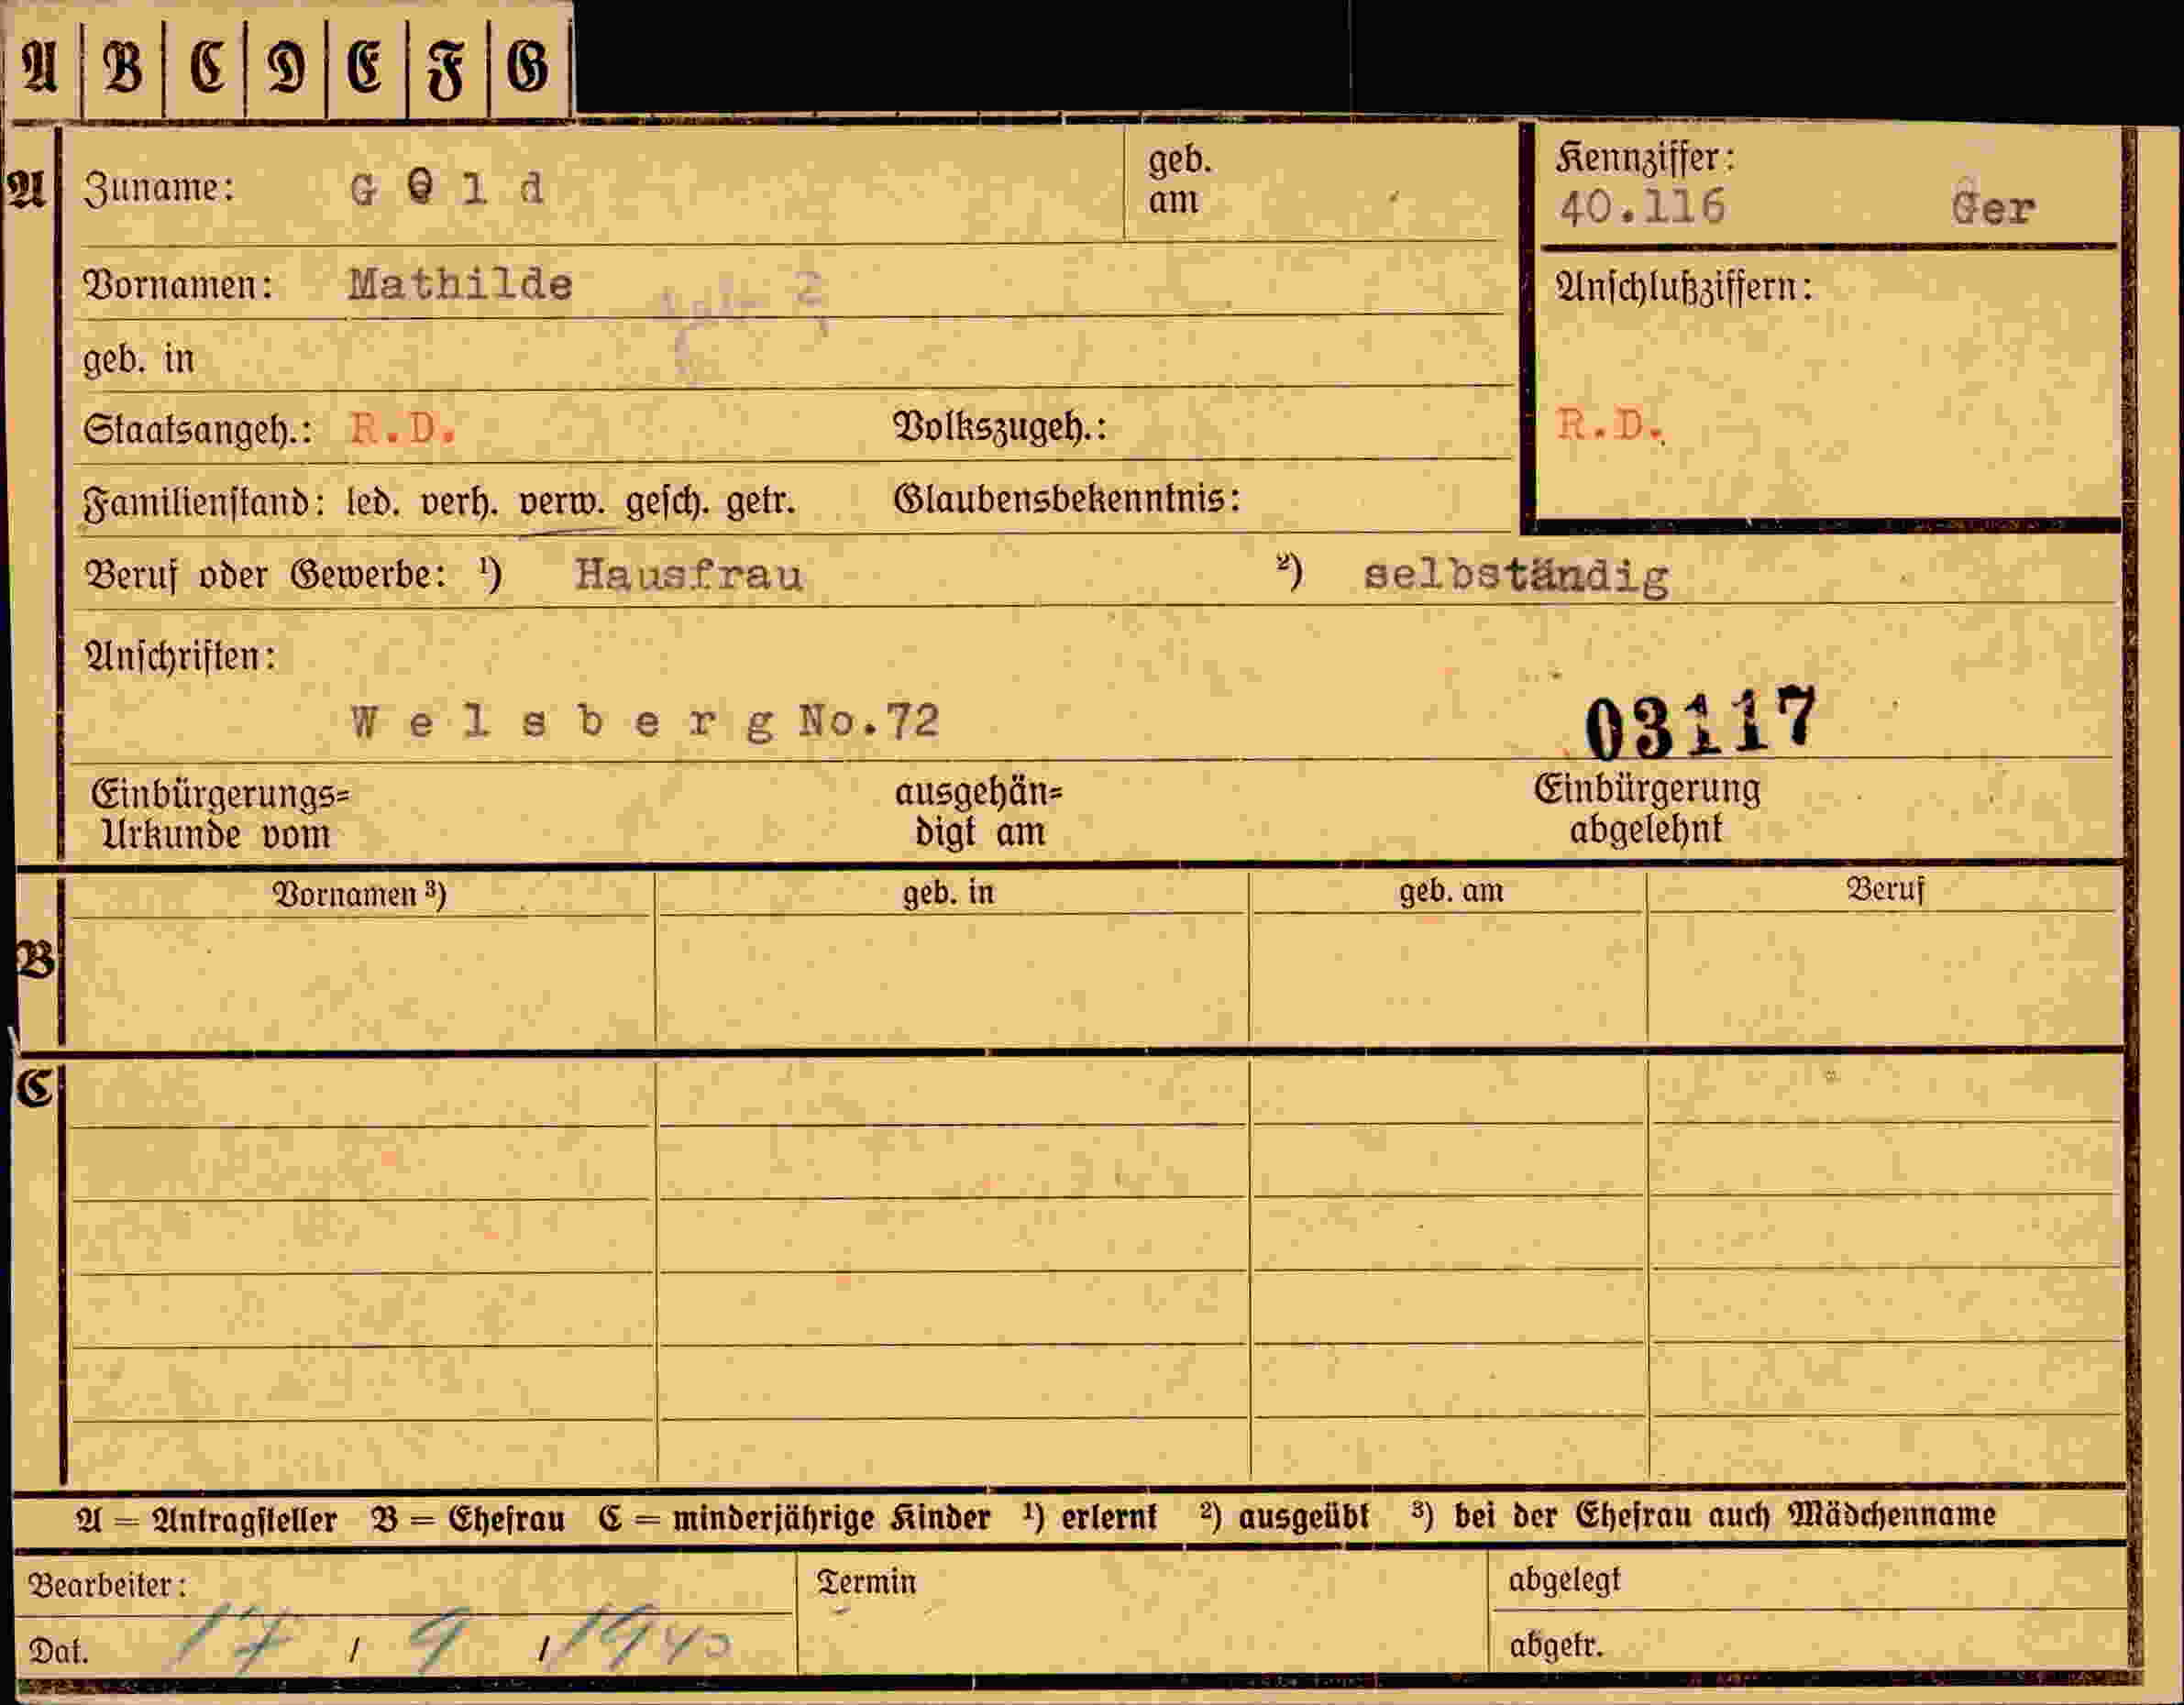 A B C D E F G
A Zuname: G o l d geb. am
Kennziffer: 40.116 Ger
Vornamen: Mathilde
Anschlußziffern:
geb. in
Staatsangeh.: R.D. Volkszugeh.: R.D.
Familienstand: led. verh. verw. gesch. getr. Glaubensbekenntnis:
Beruf oder Gewerbe: ¹) Hausfrau ²) selbständig
Anschriften:
W e l s b e r g No.72 03117
Einbürgerungs=
Urkunde vom
ausgehän=
digt am
Einbürgerung
abgelehnt
B Vornamen ³) geb. in geb. am Beruf
C
A = Antragsteller B = Ehefrau C = minderjährige Kinder ¹) erlernt ²) ausgeübt ³) bei der Ehefrau auch Mädchenname
Bearbeiter: Termin abgelegt
Dat. 17 / 9 / 1940 abgetr.